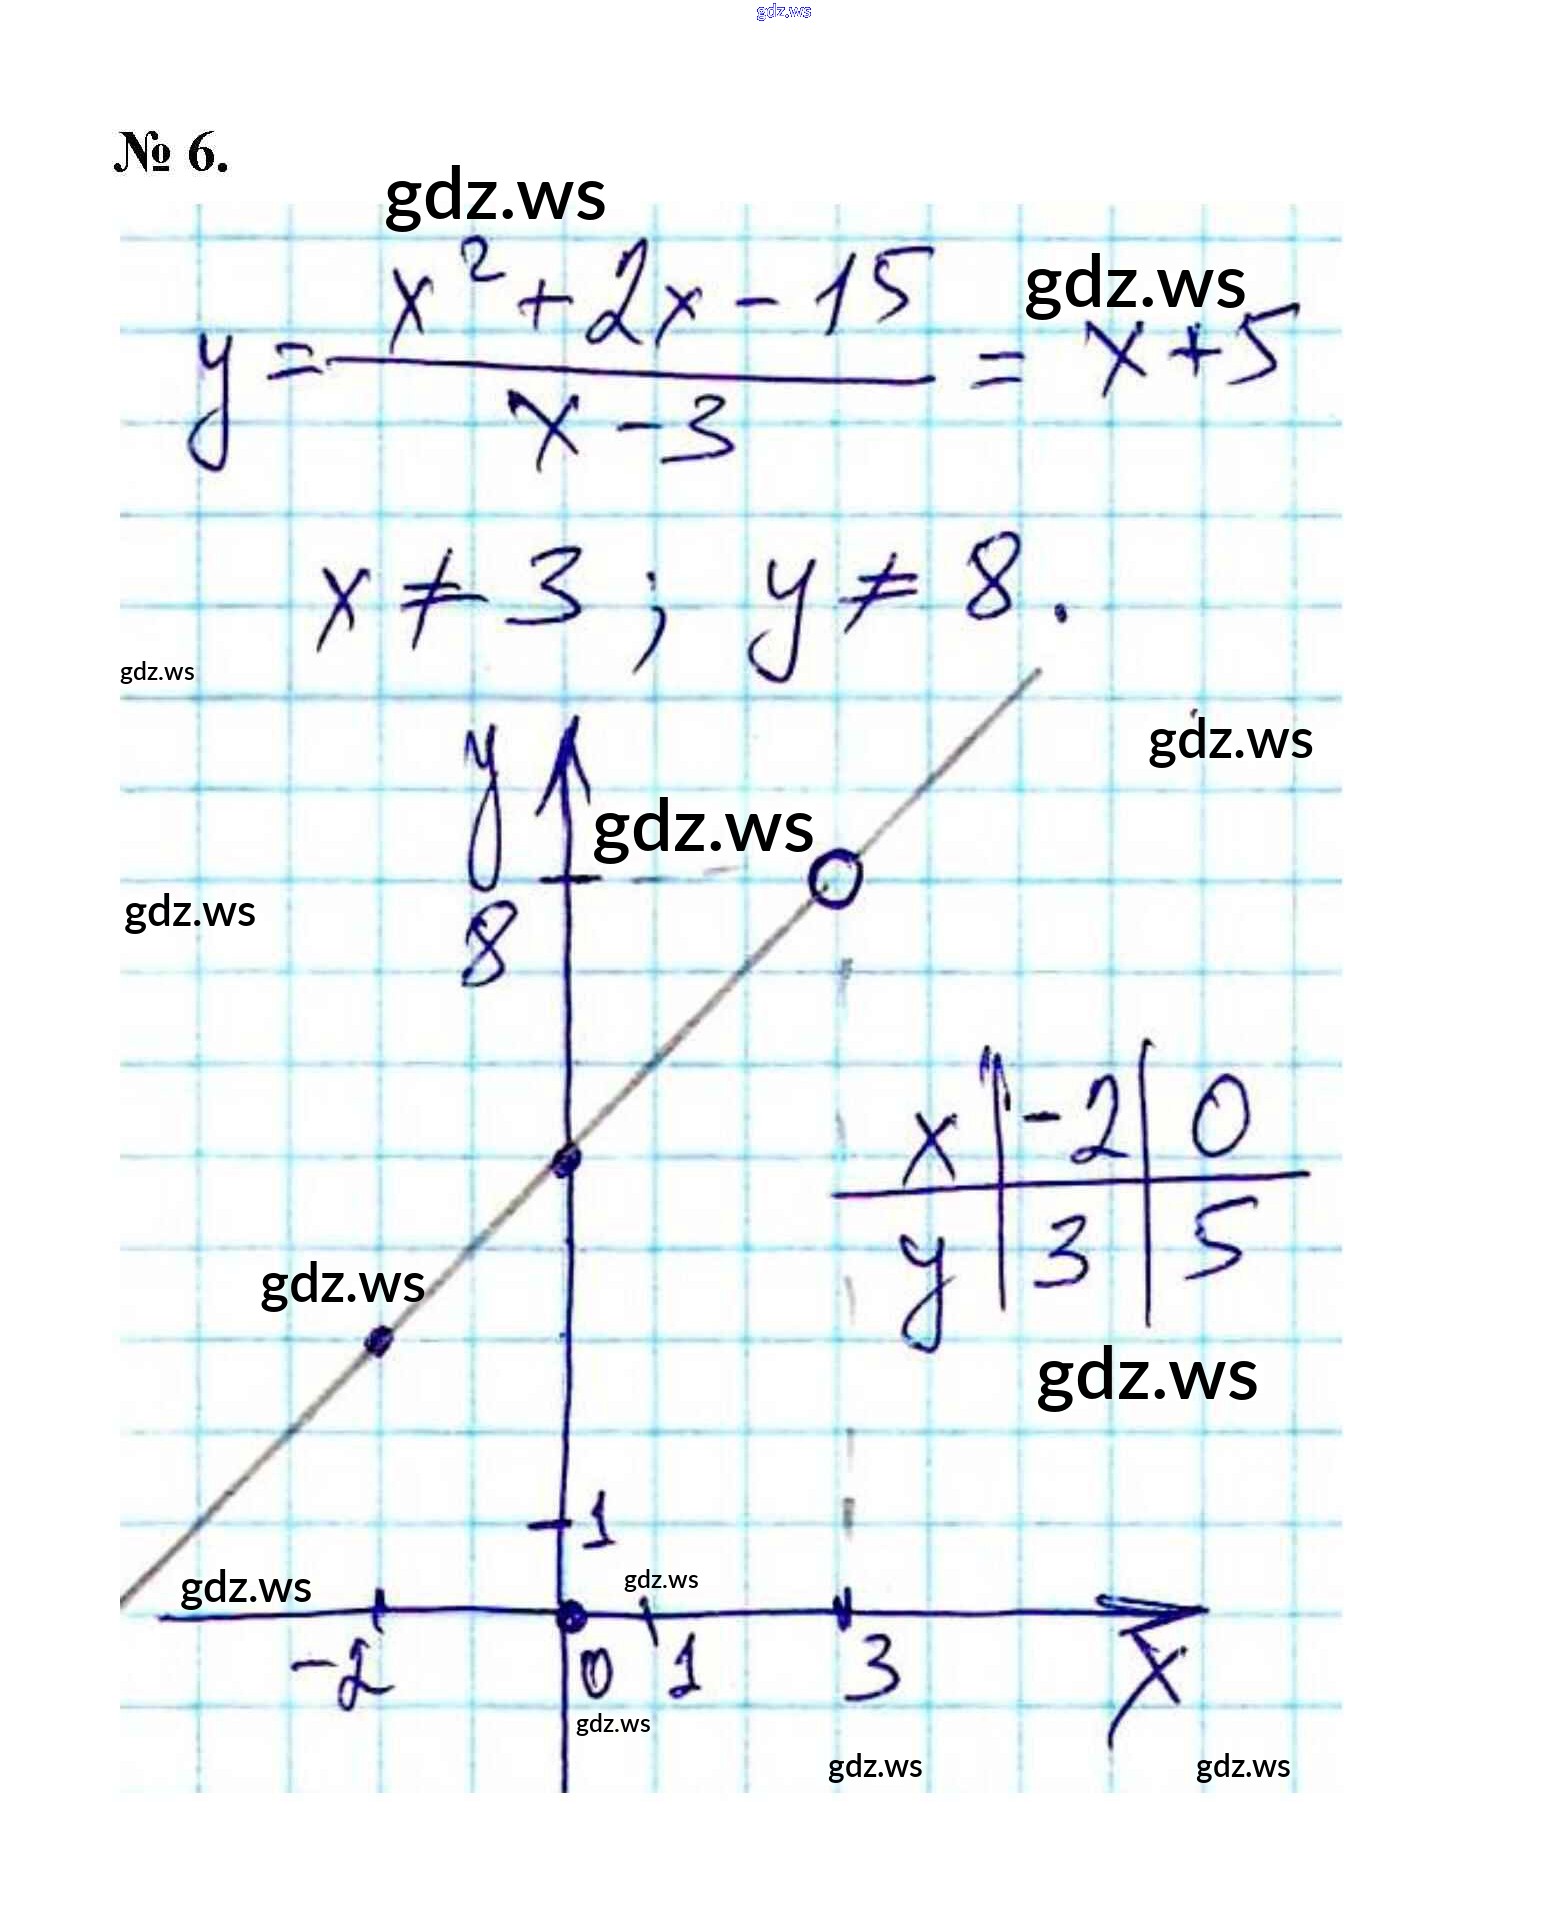 gdz.ws
№ 6.
gdz.ws
y = (x² + 2x - 15)/(x - 3) = x + 5
gdz.ws
x ≠ 3 ; y ≠ 8.
gdz.ws
gdz.ws
y
gdz.ws
8
gdz.ws
x | -2 | 0
y | 3 | 5
gdz.ws
gdz.ws
1
gdz.ws
gdz.ws
-2 0 1 3 x
gdz.ws
gdz.ws
gdz.ws